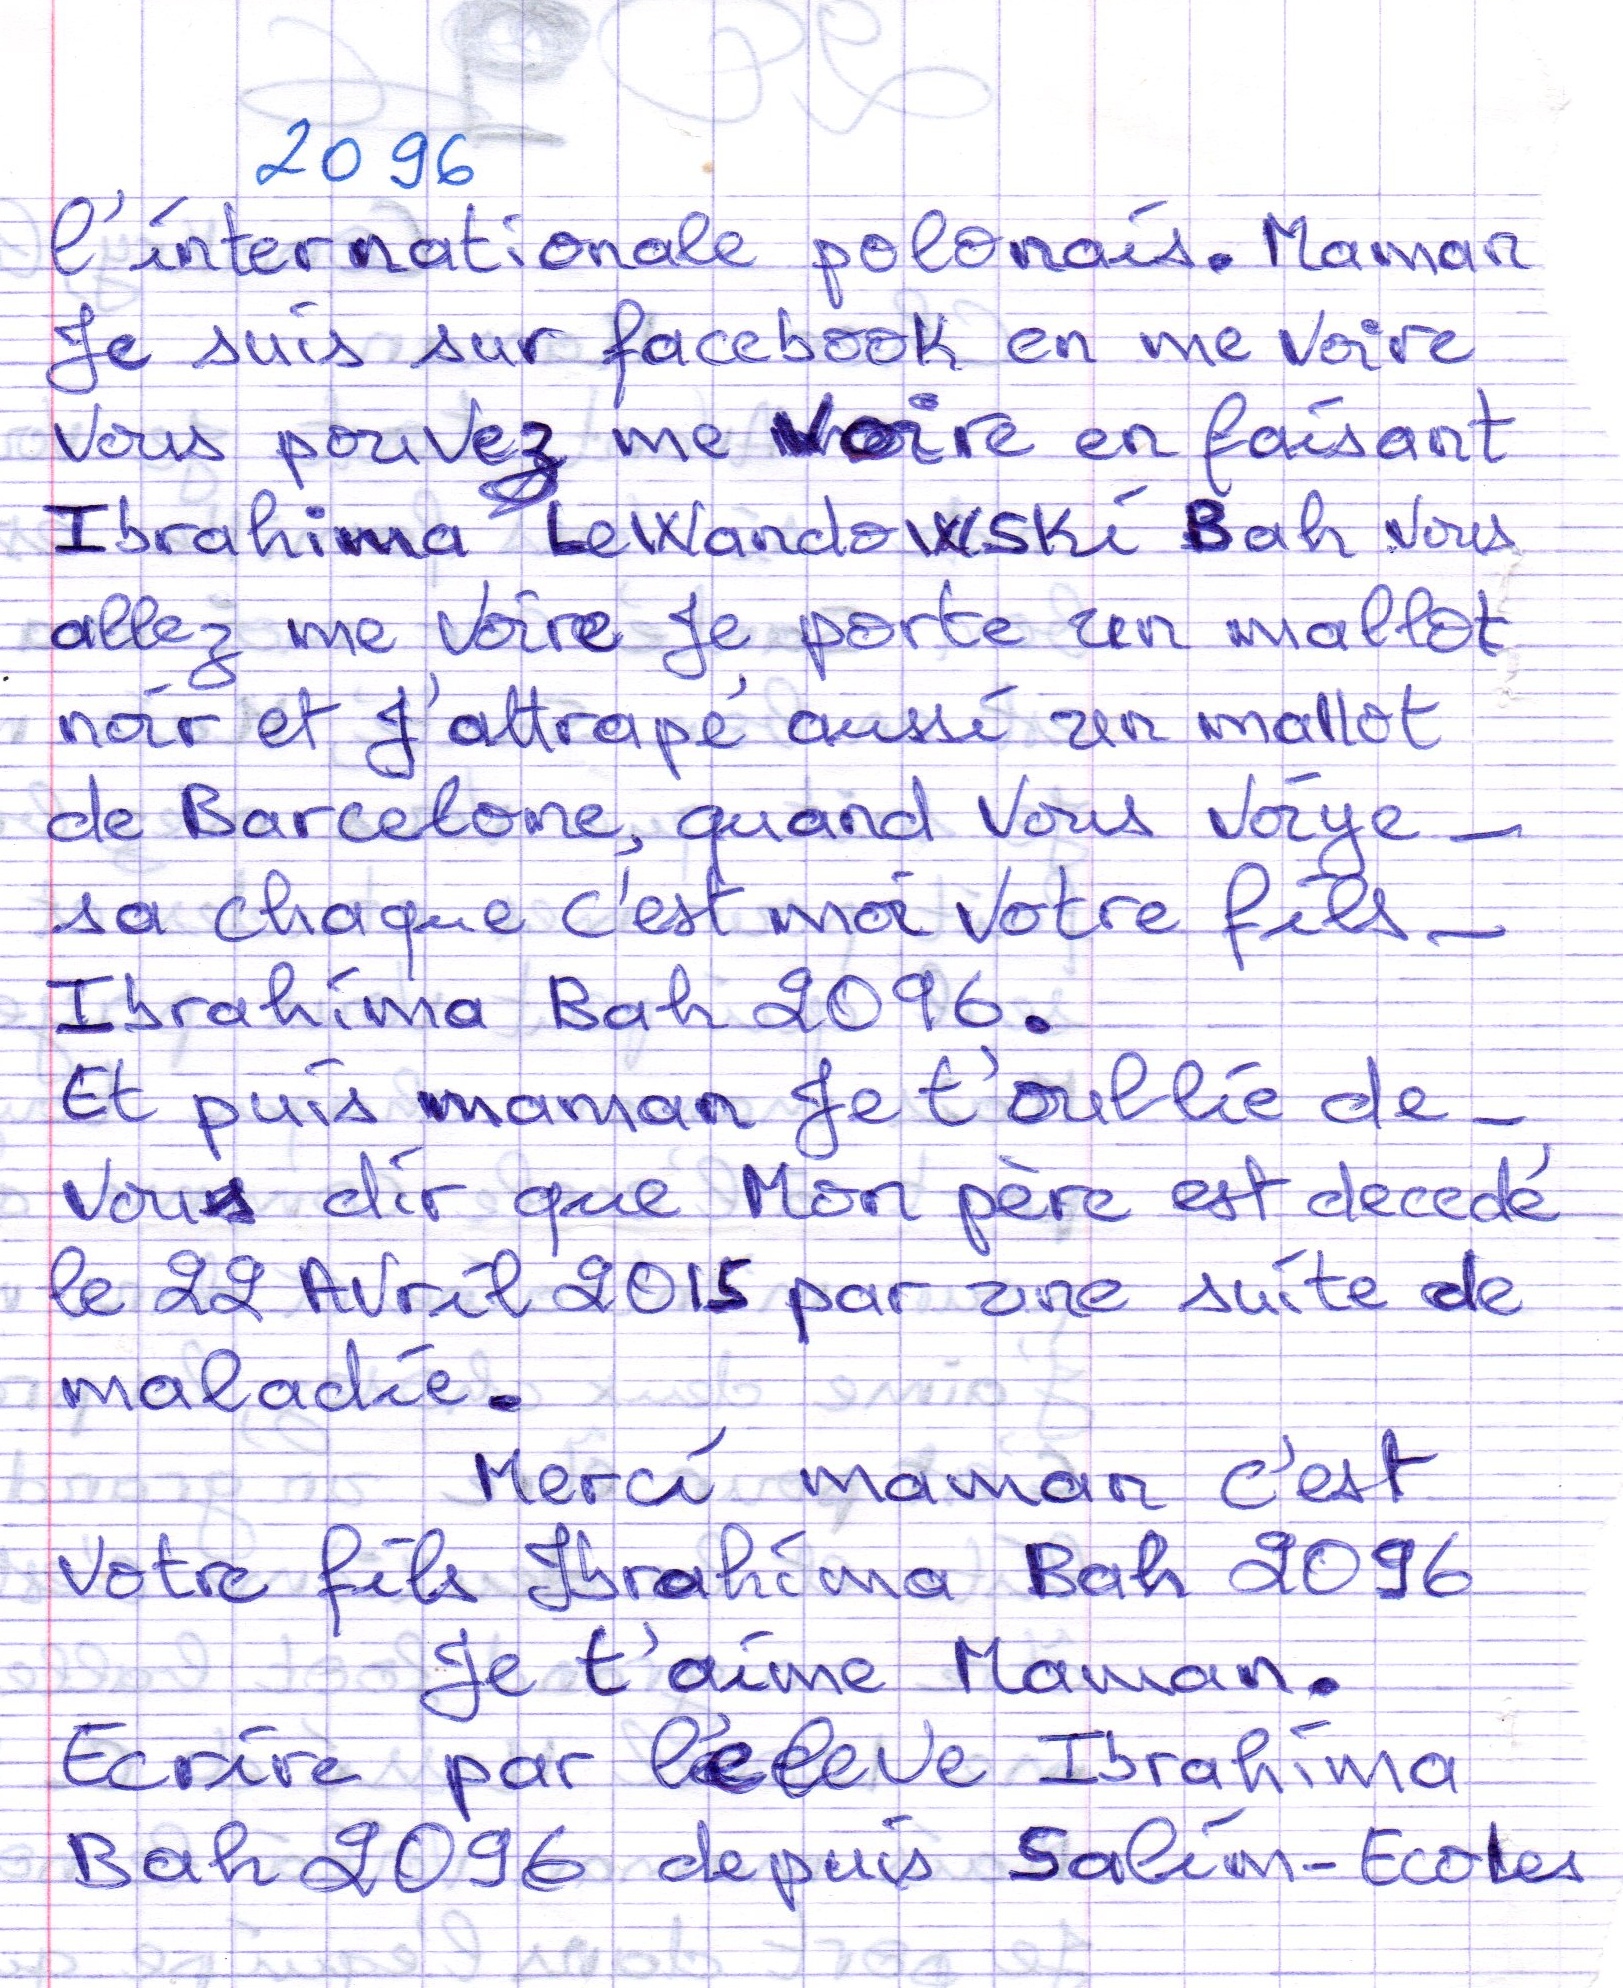 2096
l'internationale polonais. Maman
Je suis sur facebook en me voire
vous pouvez me voire en faisant
Ibrahima LeWandoWSKi Bah vous
allez me voire Je porte un mallot
noir et J'attrapé aussi un mallot
de Barcelone, quand vous voiye -
sa chaque c'est moi votre fils -
Ibrahima Bah 2096.
Et puis maman Je t'oublie de -
vous dir que Mon père est decedé
le 22 Avril 2015 par une suite de
maladie.
Merci maman c'est
votre fils Ibrahima Bah 2096
Je t'aime Maman.
Ecrire par l'éleve Ibrahima
Bah 2096 depuis Salim-Ecoles